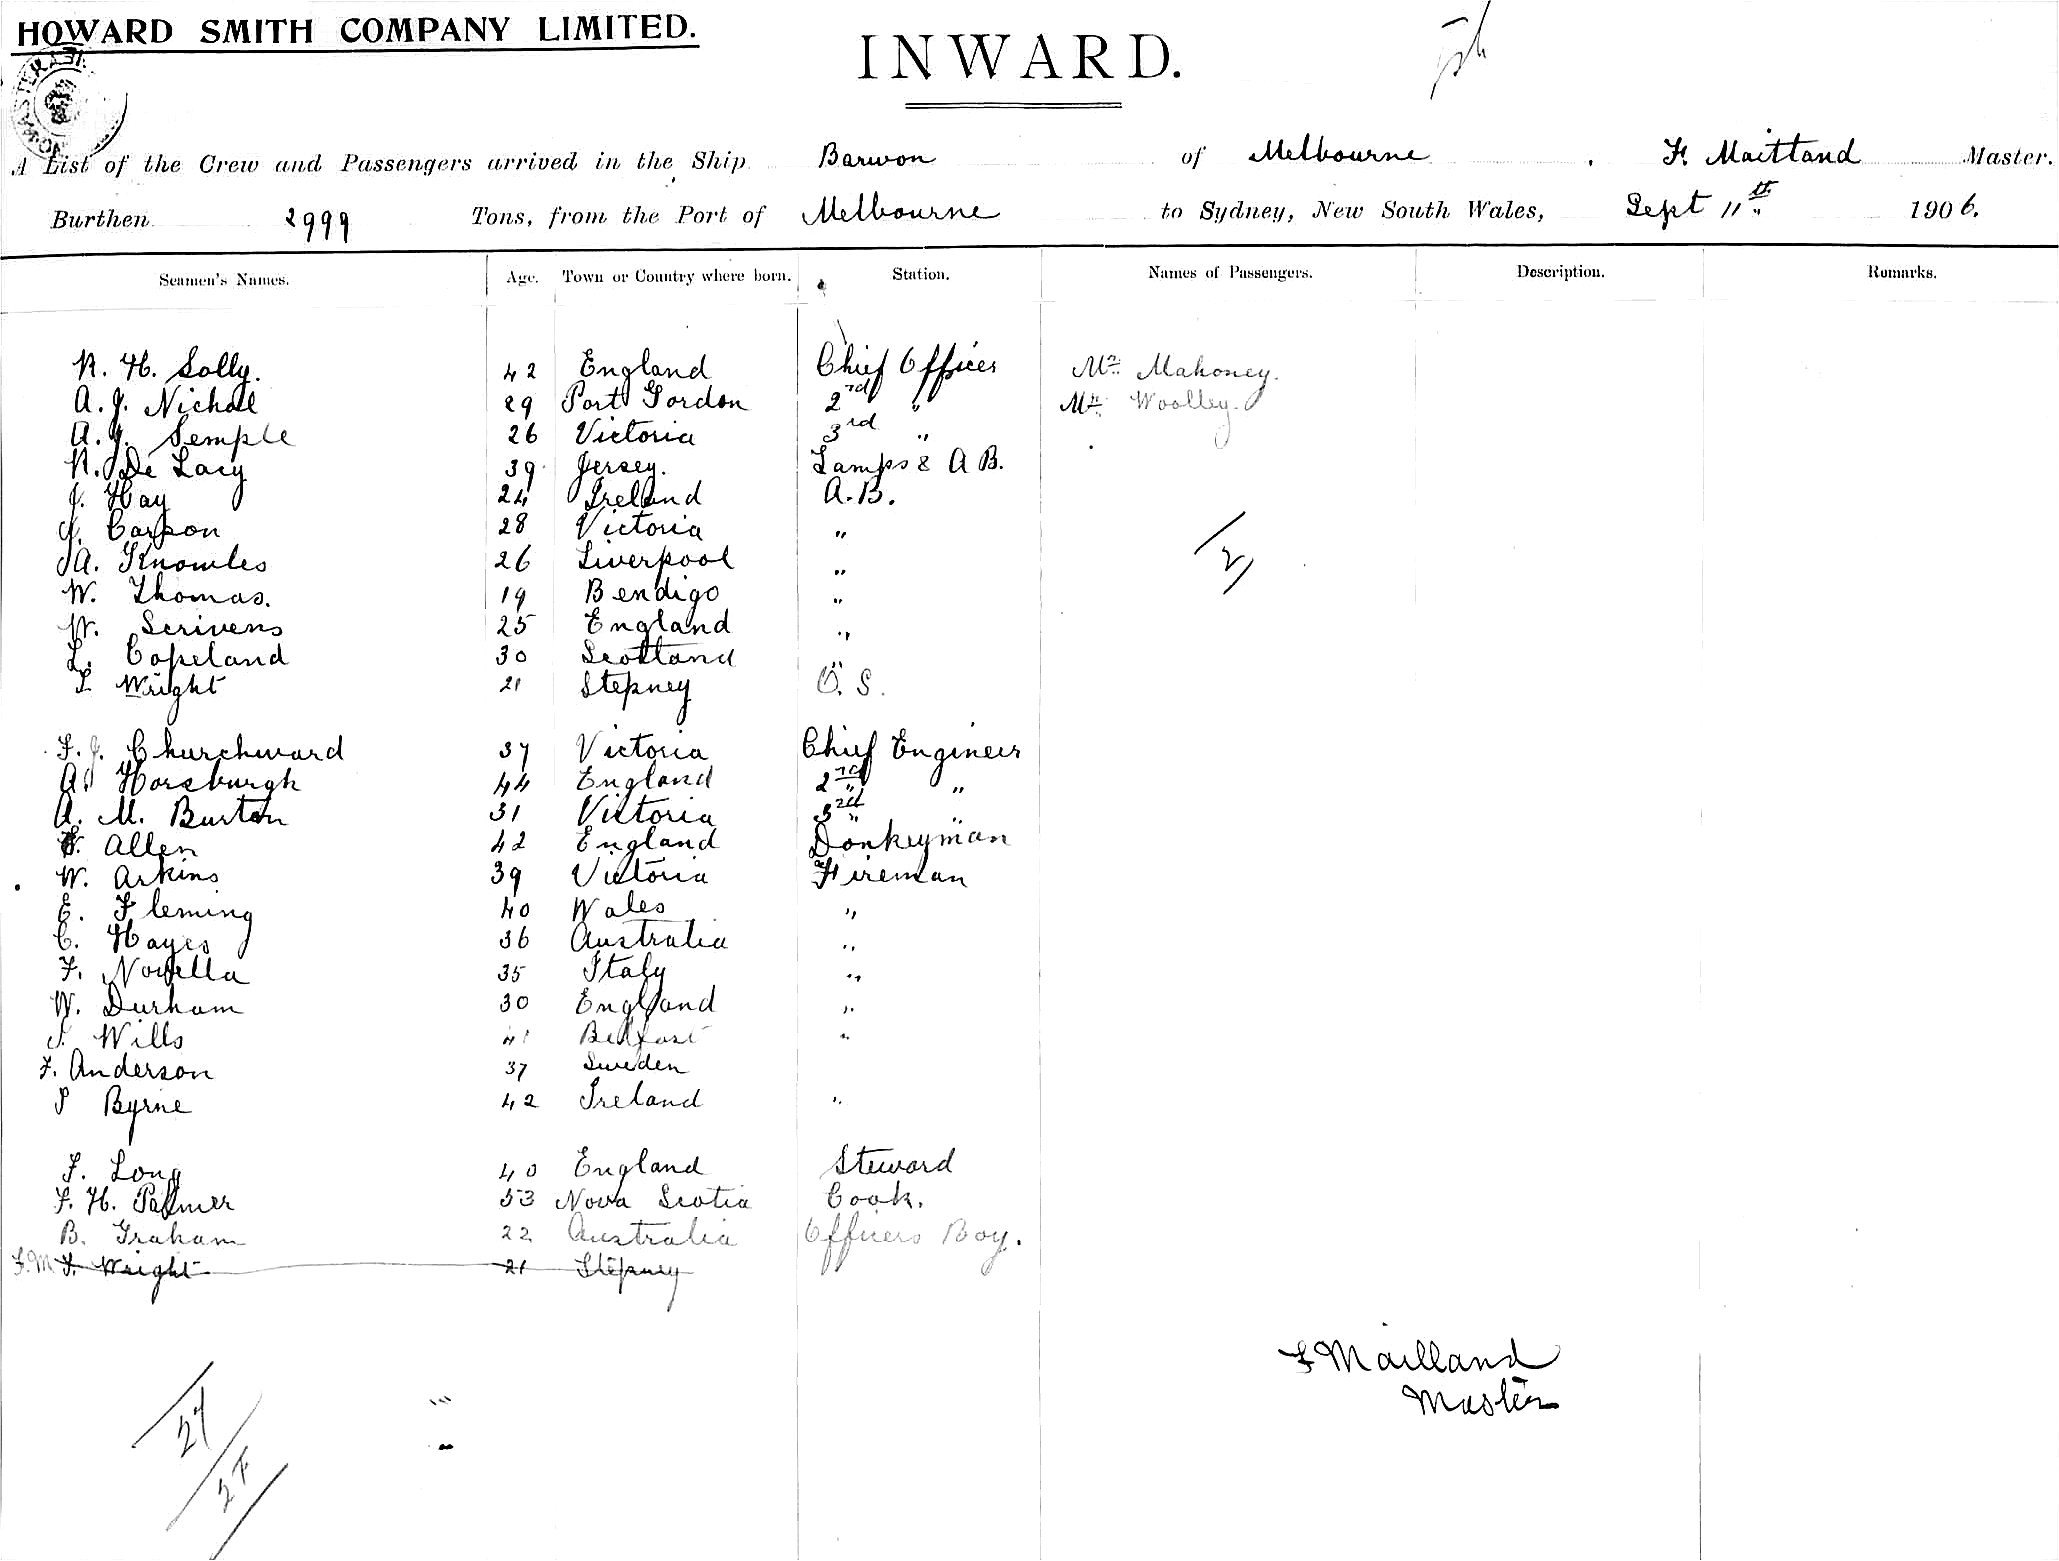 HOWARD SMITH COMPANY LIMITED.
INWARD.
A List of the Crew and Passengers arrived in the Ship Barwon of Melbourne, F. Maitland Master.
Burthen 2999 Tons, from the Port of Melbourne to Sydney, New South Wales, Sept 11th 1906.
Seamen's Names. Age. Town or Country where born. Station. Names of Passengers. Description. Remarks.
N. H. Solly. 42 England Chief Officer Mr. Mahoney.
A. J. Nichol 29 Port Gordon 2nd " Mr. Woolley.
A. J. Semple 26 Victoria 3rd "
N. De Lacy 39 Jersey. Lamps & A B.
J. Hay 24 Ireland A.B.
J. Carson 28 Victoria "
A. Knowles 26 Liverpool "
W. Thomas. 19 Bendigo "
W. Scrivens 25 England "
L. Copeland 30 Scotland "
Wright 21 Stepney O. S.
2
F. J. Churchward 37 Victoria Chief Engineer
A. Horsburgh 44 England 2nd "
A. M. Burton 31 Victoria 3rd "
Allen 42 England Donkeyman
W. Arkins 39 Victoria Fireman
E. Fleming 40 Wales "
C. Hayes 36 Australia "
F. Novella 35 Italy "
W. Durham 30 England "
Wills 41 Belfast "
F. Anderson 37 Sweden
P Byrne 42 Ireland "
F. Long 40 England Steward
F. H. Palmer 53 Nova Scotia Cook.
B. Graham 22 Australia Officers Boy.
F.M F. Wright 21 Stepney
F Maitland
Master
27
27